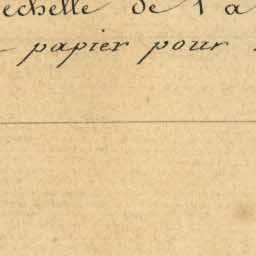 echelle de 1 a
papier pour